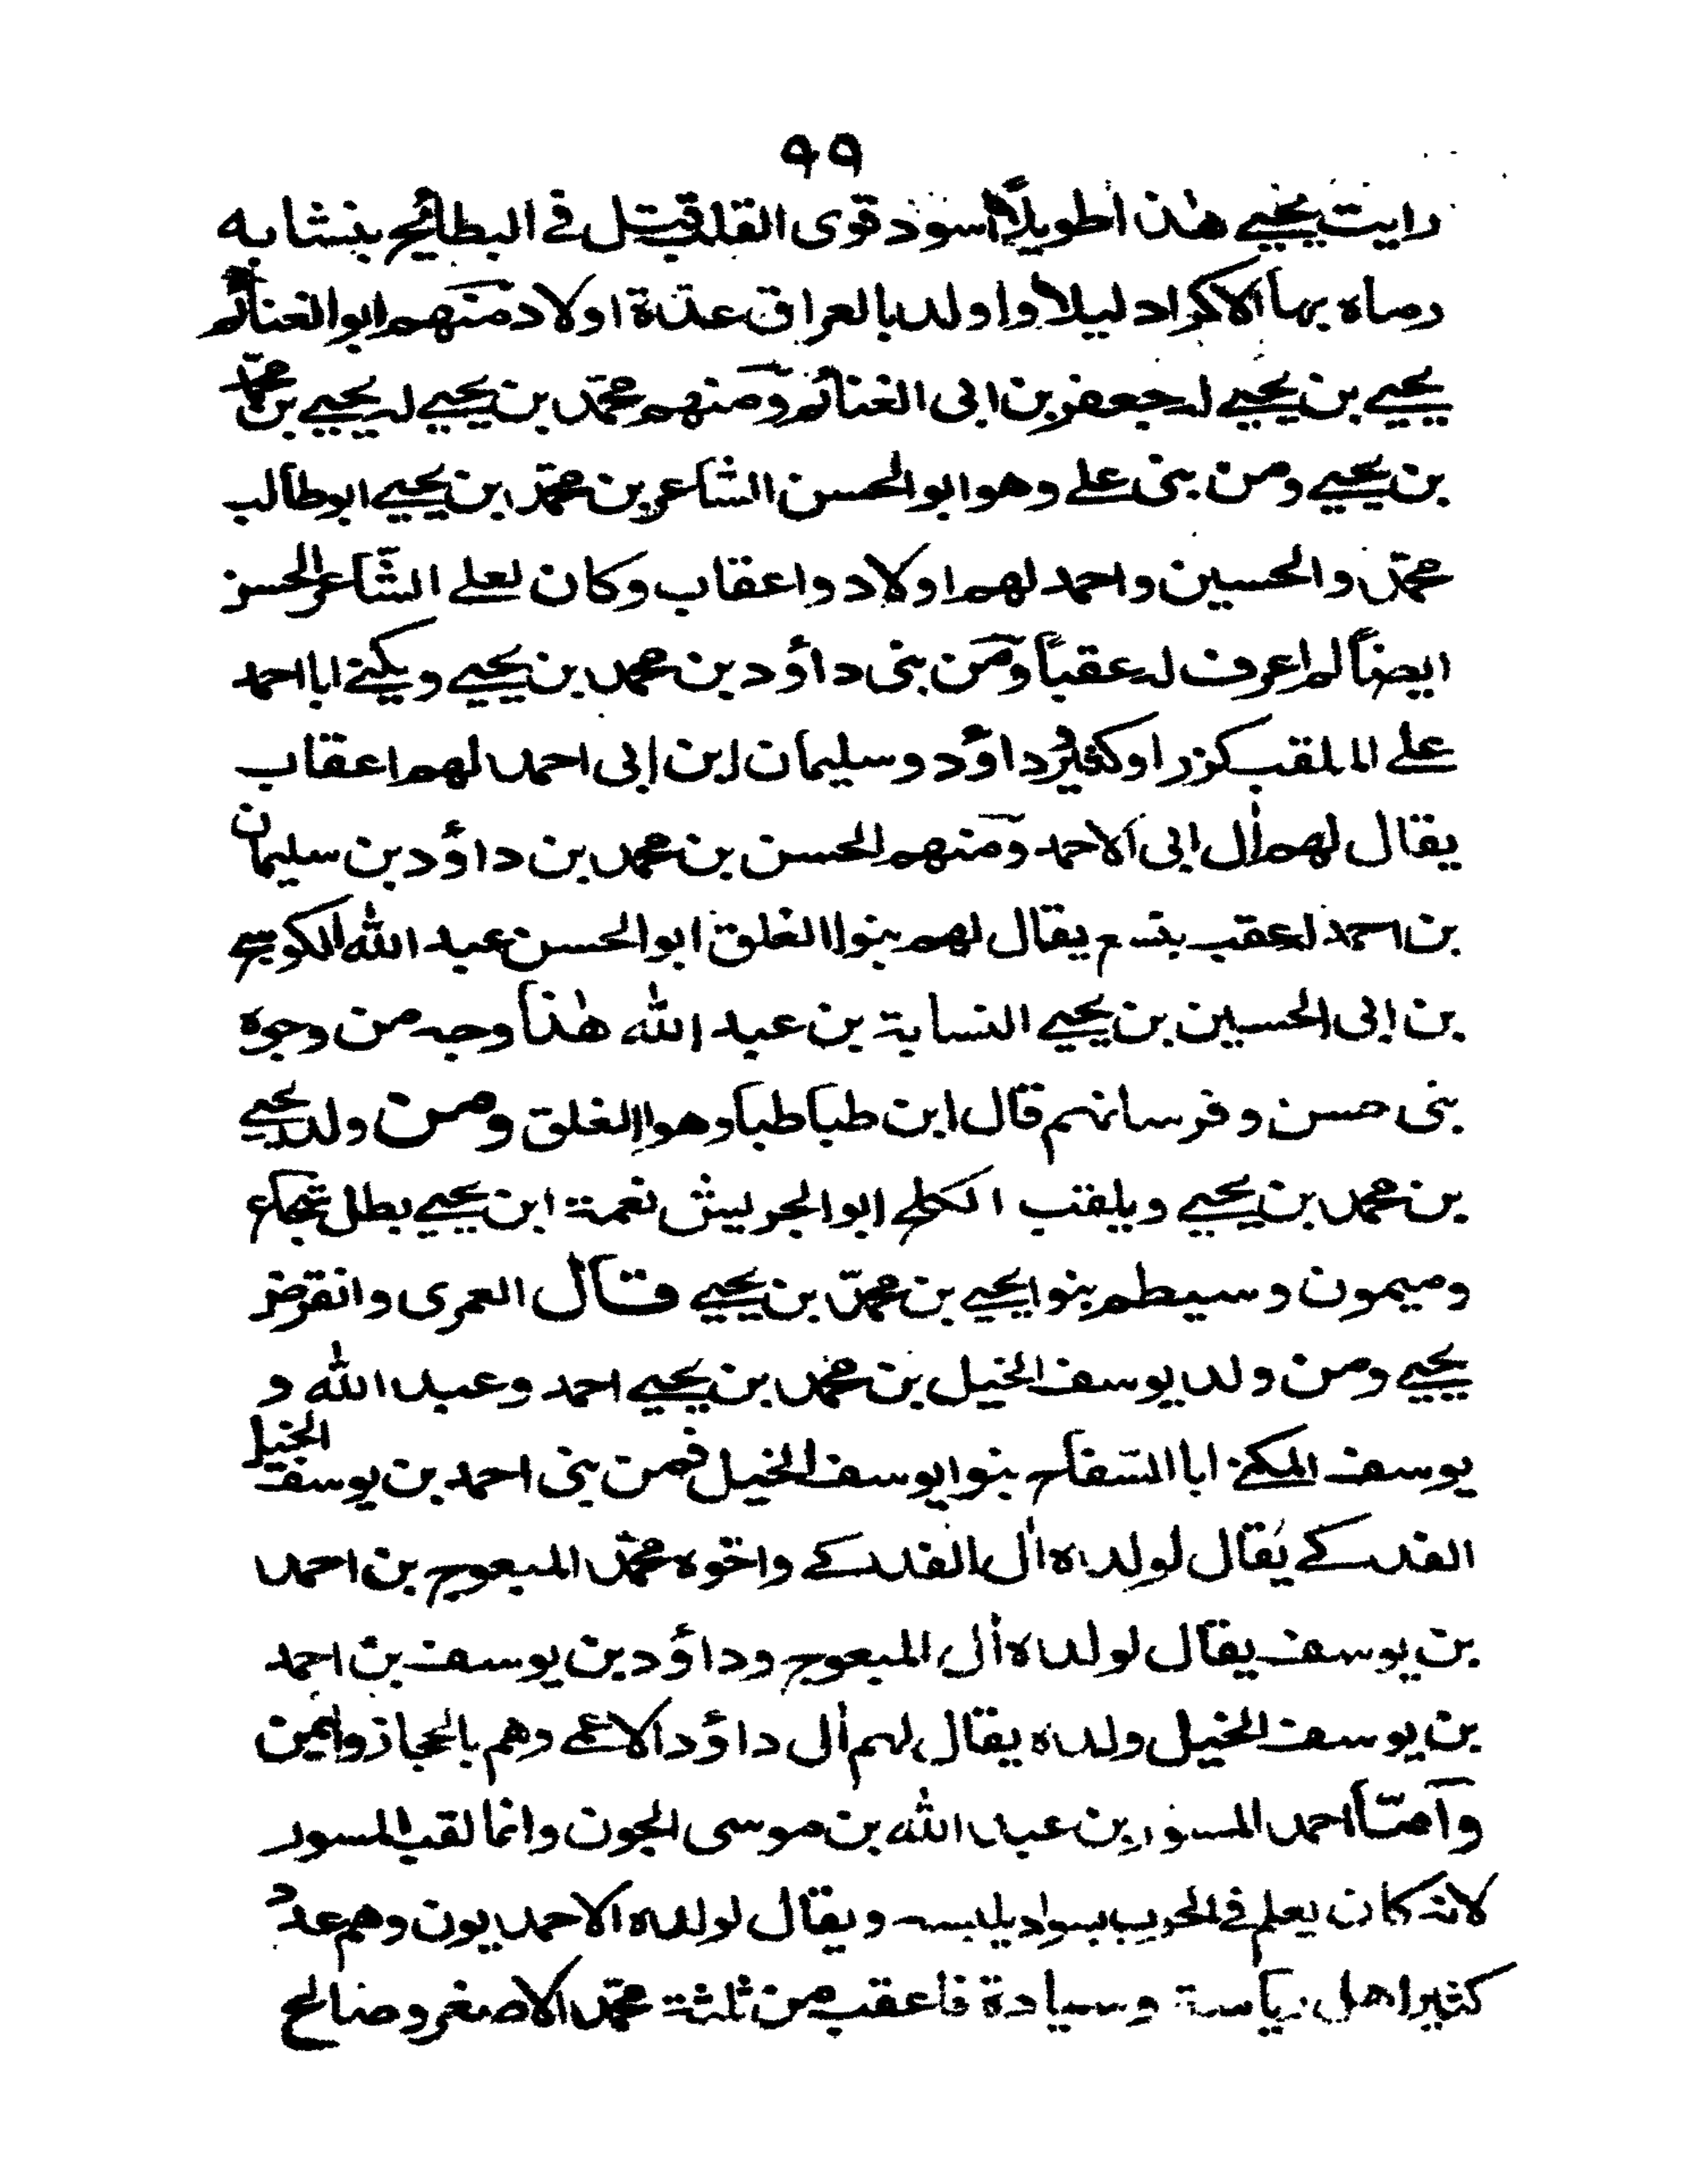 ٩٩
رايت يحيي هذا طويلاً اسود قوى القلب قتل فى البطائح بنشابه
رماه بها الاكراد ليلاً واولد بالعراق عدّة اولاد منهم ابو الغنائم
يحيي بن يحيي له جعفر بن ابى الغنائم ومنهم محمّد بن يحيي له يحيي بن محمّد
بن يحيي ومن بنى على وهو ابو الحسن الشاعر بن محمّد ابن يحيي ابو طالب
محمّد والحسين واحمد لهم اولاد واعقاب وكان لعلى الشّاعر الحسن
ايضاً لم اعرف له عقباً ومن بنى داؤد بن محمد بن يحيي ويكنى ابا احمد
على الملقب كزر او داؤد وسليمان ابن ابى احمد لهم اعقاب
يقال لهم اٰل ابى الاحمد ومنهم الحسن بن محمد بن داؤد بن سليمان
بن احمد له عقب يقال لهم بنوا الغلق ابو الحسن عبد الله
بن ابى الحسين بن يحيي النسابة بن عبد الله هٰذا وجه من وجوه
بنى حسن وفرسانهم قال ابن طباطبا وهوا الغلق ومن ولد يحيي
بن محمد بن يحيي ويلقب ابو الجريش نعمة ابن يحيي بطل شجاع
وميمون وسيطم بنوا يحيي بن محمّد بن يحيي قال العمرى وانقرض
يحيي ومن ولد يوسف الخيل بن محمّد بن يحيي احمد وعبد الله و
يوسف المكنى ابا السّفاح بنوا يوسف الخيل فمن بنى احمد بن يوسف الخيل
الفدكے يقال لولده اٰل الفدكے واخوه محمّد المبعوج بن احمد
بن يوسف يقال لولده اٰل المبعوج وداؤد بن يوسف بن احمد
بن يوسف الخيل ولده يقال لهم اٰل داؤد الاعمى وهم بالحجاز واليمن
وامّا احمد المسور بن عبد الله بن موسى الجون وانما لقب المسور
لانه كان يعلم فى الحرب بسواد يلبسه ويقال لولده الاحمديون وهم عدد
كثير اهل رياسة وسيادة فاعقب من ثلثة محمّد الاصغر وصالح